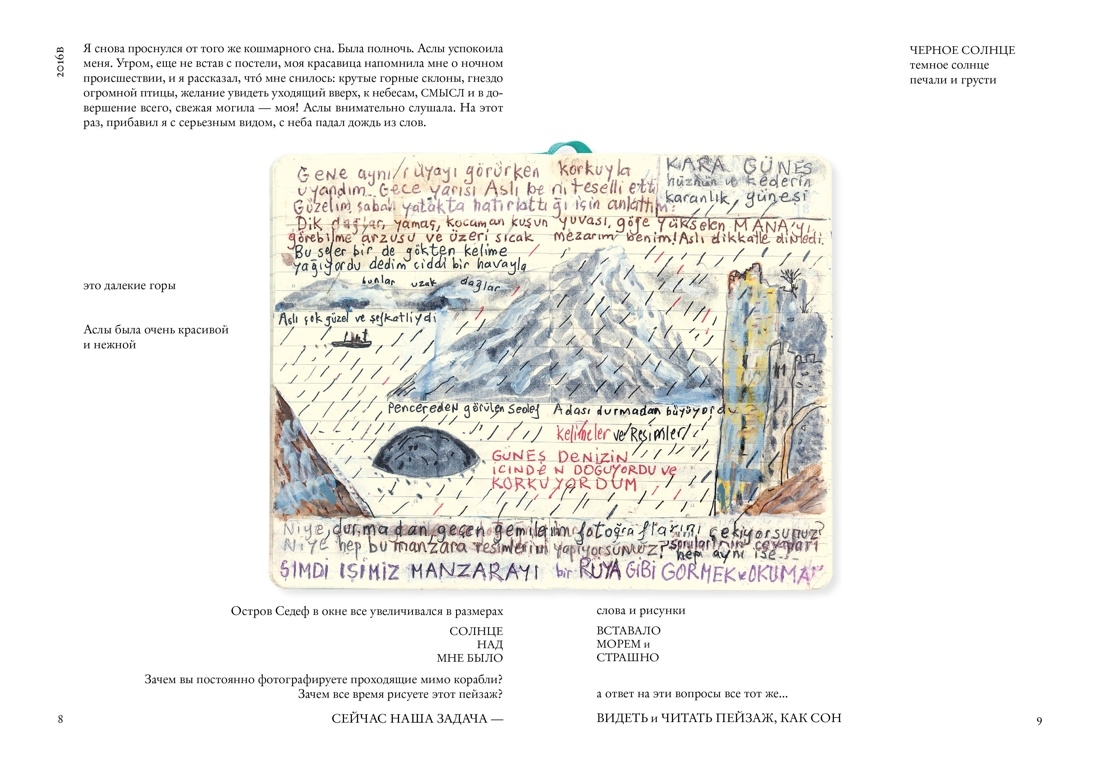 2016в
Я снова проснулся от того же кошмарного сна. Была полночь. Аслы успокоила
меня. Утром, еще не встав с постели, моя красавица напомнила мне о ночном
происшествии, и я рассказал, что́ мне снилось: крутые горные склоны, гнездо
огромной птицы, желание увидеть уходящий вверх, к небесам, СМЫСЛ и в до-
вершение всего, свежая могила — моя! Аслы внимательно слушала. На этот
раз, прибавил я с серьезным видом, с неба падал дождь из слов.
ЧЕРНОЕ СОЛНЦЕ
темное солнце
печали и грусти
Gene aynı rüyayı görürken korkuyla
uyandım. Gece yarısı Aslı beni teselli etti
Güzelim sabah yatakta hatırlattığı için anlattım:
KARA GÜNEŞ
hüznün ve kederin
karanlık, güneşi
Dik dağlar, yamaç, kocaman kuşun yuvası, göğe yükselen MANA'yı
görebilme arzusu ve üzeri sıcak mezarım benim! Aslı dikkatle dinledi.
Bu sefer bir de gökten kelime
yağıyordu dedim ciddi bir havayla
bunlar uzak dağlar
Aslı çok güzel ve şefkatliydi
Pencereden görülen Sedef Adası durmadan büyüyordu
Kelimeler ve Resimler
GÜNEŞ DENİZİN
İÇİNDEN DOĞUYORDU VE
KORKUYORDUM
Niye, durmadan geçen gemilerin fotoğraflarını çekiyorsunuz?
Niye hep bu manzara resimlerini yapıyorsunuz? soruların cevapları
hep aynı ise...
ŞİMDİ İŞİMİZ MANZARAYI bir RÜYA GİBİ GÖRMEK ve OKUMAK
это далекие горы
Аслы была очень красивой
и нежной
Остров Седеф в окне все увеличивался в размерах
слова и рисунки
СОЛНЦЕ
НАД
МНЕ БЫЛО
ВСТАВАЛО
МОРЕМ и
СТРАШНО
Зачем вы постоянно фотографируете проходящие мимо корабли?
Зачем все время рисуете этот пейзаж?
а ответ на эти вопросы все тот же...
СЕЙЧАС НАША ЗАДАЧА —
ВИДЕТЬ и ЧИТАТЬ ПЕЙЗАЖ, КАК СОН
8
9